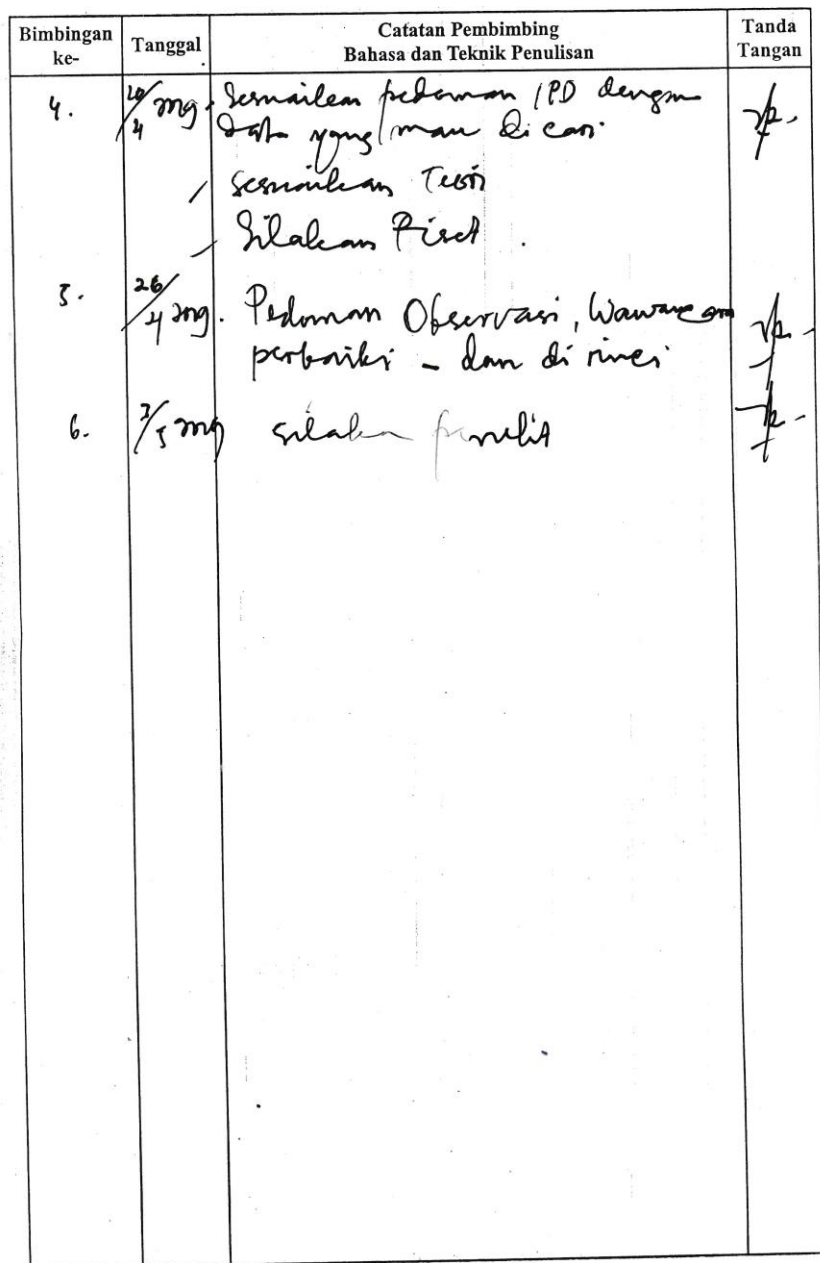 Bimbingan ke-
Tanggal
Catatan Pembimbing
Bahasa dan Teknik Penulisan
Tanda Tangan
4. 20/4 2019 - Sesuaikan pedoman IPD dengan
data yang mau di cari.
/ sesuaikan Teori
/ Silakan Riset.
5. 26/4 2019. Pedoman Observasi, Wawancara
perbaiki - dan di rinci
6. 3/5 2019 silakan